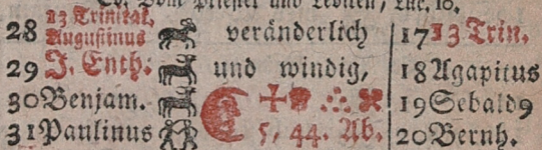 Ev. Vom Priester und Leviten, Luc. 10.
28 13 Trinitat. Augustinus veränderlich 17 13 Trin.
29 J. Enth. und windig, 18 Agapitus
30 Benjam. 19 Sebald9
31 Paulinus 5, 44. Ab. 20 Bernh.